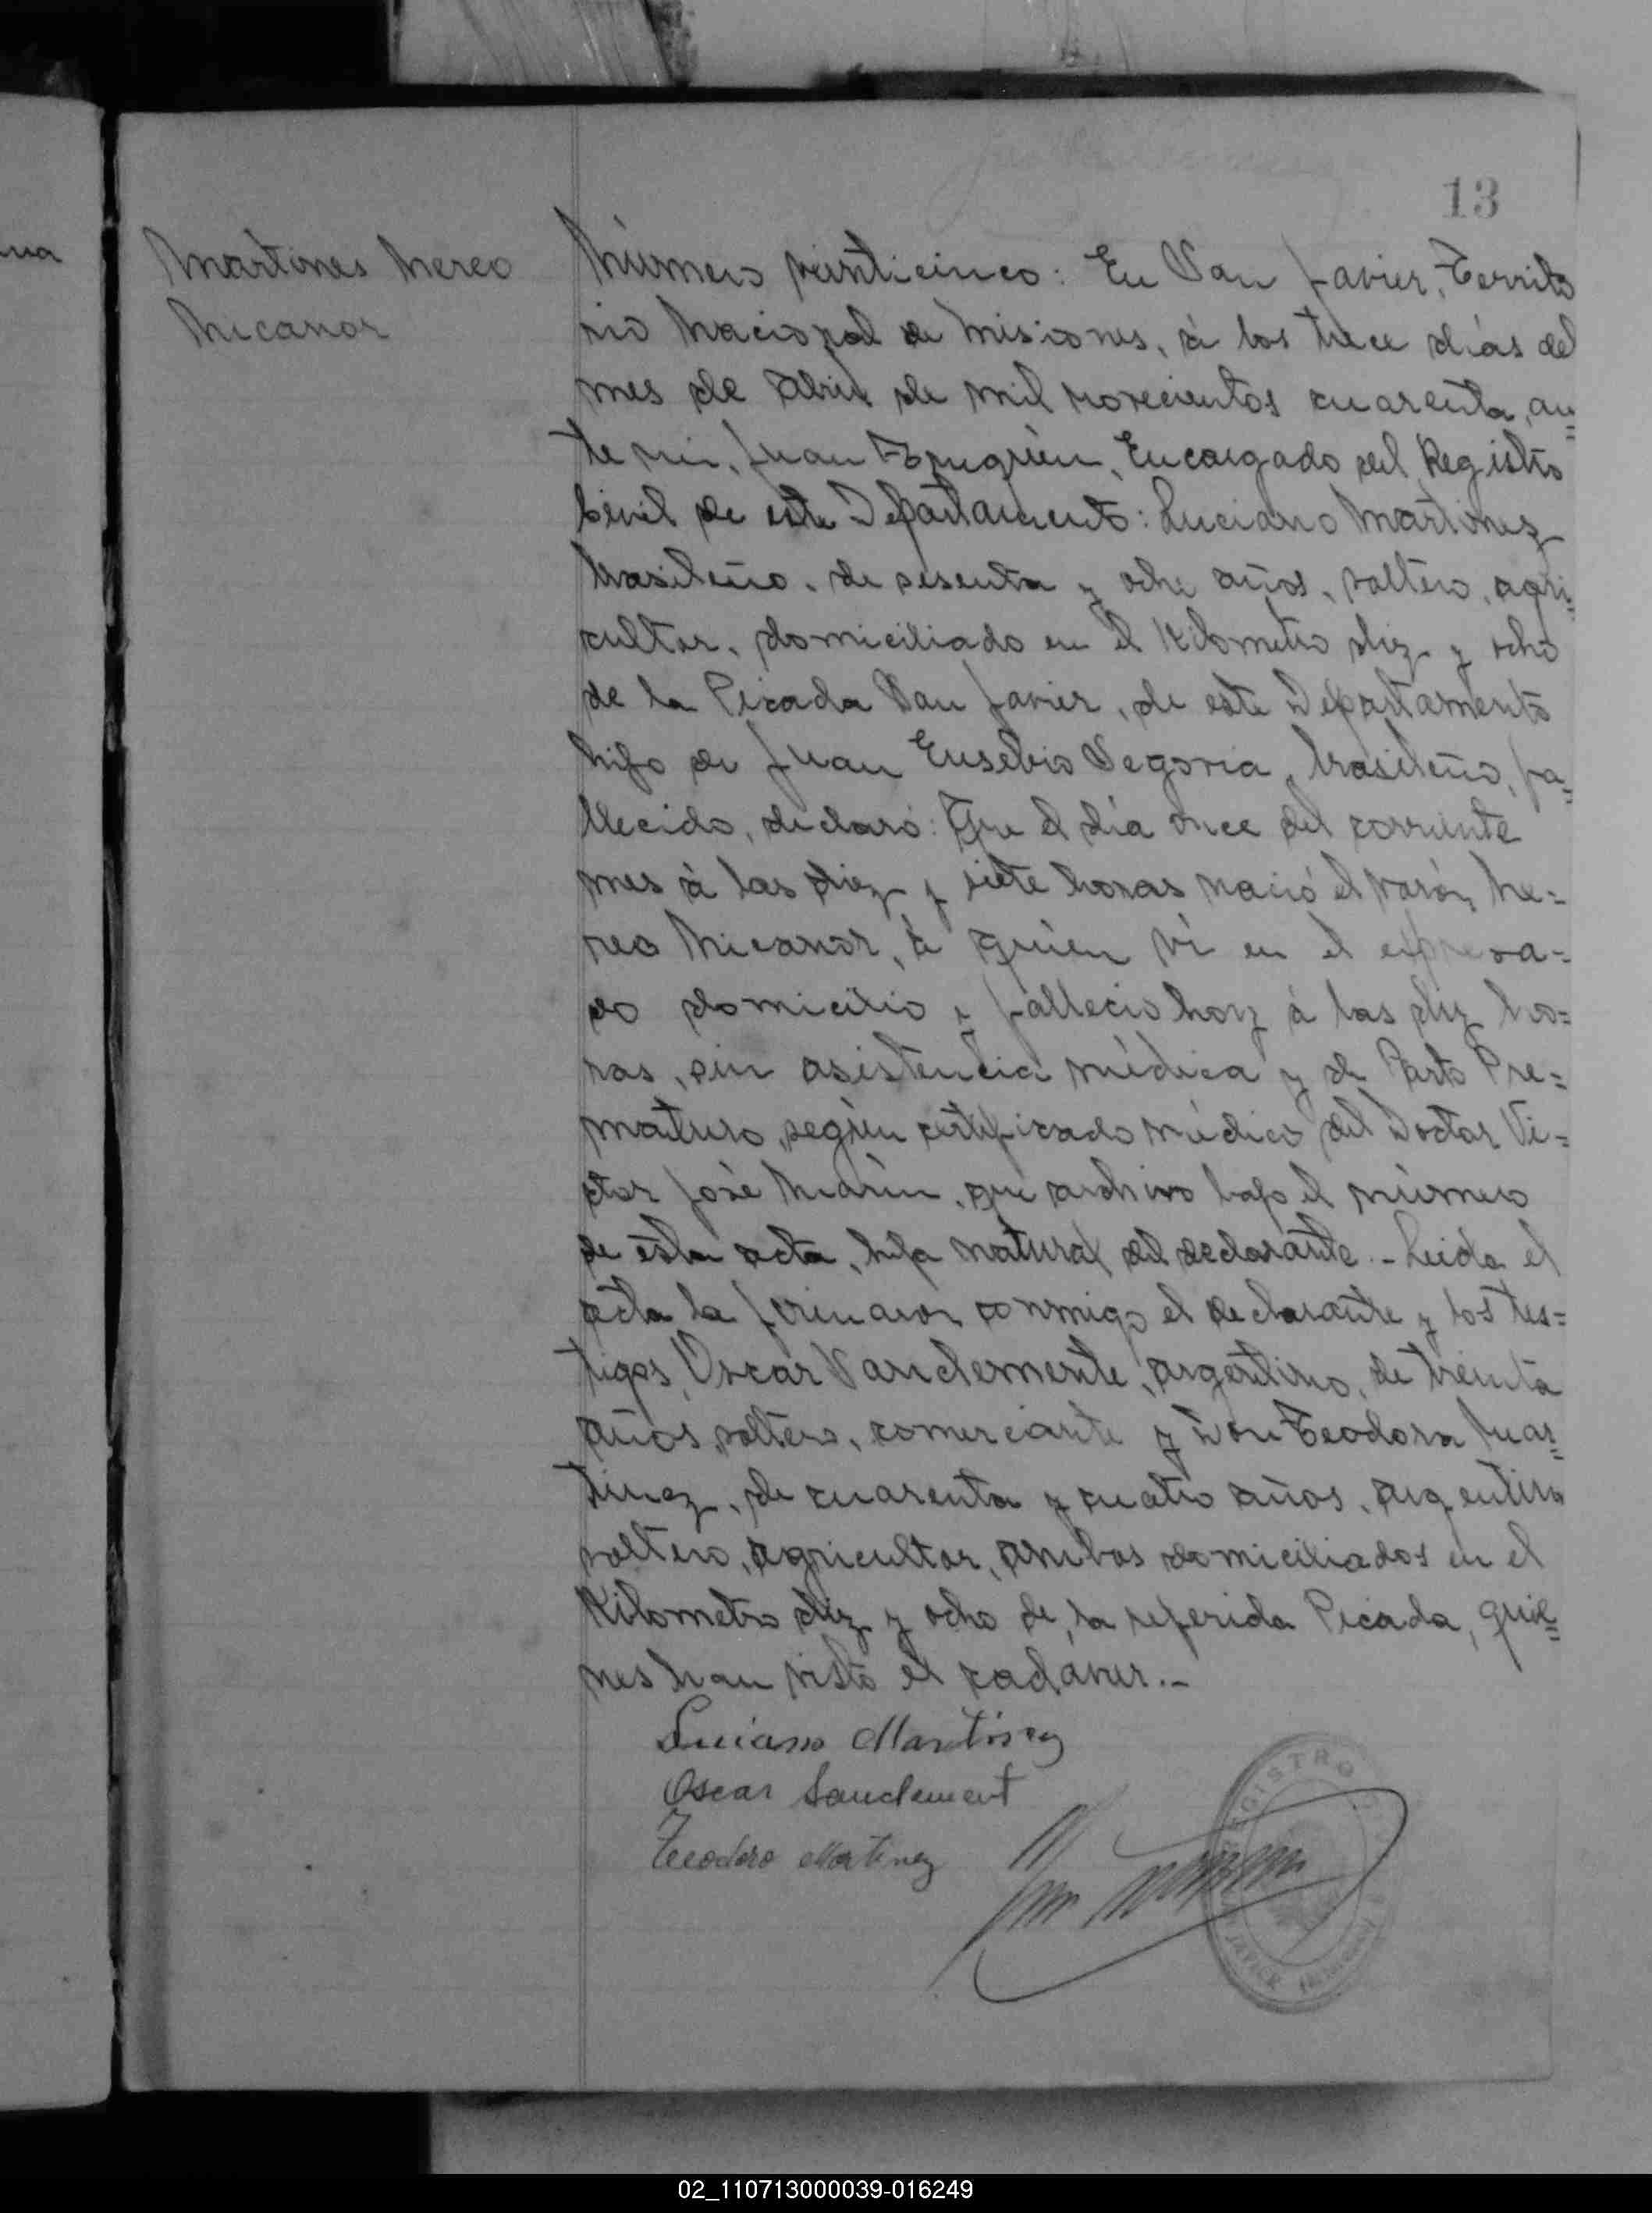 13
Martines Nereo
Nicanor
Número veinticinco: En San Javier, Territo
rio Nacional de Misiones, á los trece días del
mes de Abril de mil novecientos cuarenta, an=
te mi, Juan Encargado del Registro
Civil de este Departamento: Luciano Martinez
brasileño, de sesenta y ocho años, soltero, agri=
cultor, domiciliado en el Kilometro diez y ocho
de la Picada San Javier, de este Departamento
hijo de Juan Eusebio Segovia, brasileño, fa=
llecido, declaró: Que el día once del corriente
mes á las diez y siete horas nació el varón Ne=
reo Nicanor, á quien ví en el expresa=
do domicilio y falleció hoy á las diez ho=
ras, sin asistencia médica y de Parto Pre=
maturo, según certificado médico del Doctor Vi=
ctor José Marin, que archivo bajo el número
de ésta acta, hijo natural del declarante.- Leida el
acta la firmaron conmigo el declarante y los tes=
tigos, Oscar Sanclemente, argentino, de treinta
años, soltero, comerciante y Don Teodoro Mar=
tinez, de cuarenta y cuatro años, argentino
soltero, agricultor, ambos domiciliados en el
Kilometro diez y ocho de la referida Picada, quie=
nes han visto el cadaver.-
Luciano Martinez
Oscar Sanclement
Teodoro Martinez
REGISTRO
JAVIER
02_110713000039-016249